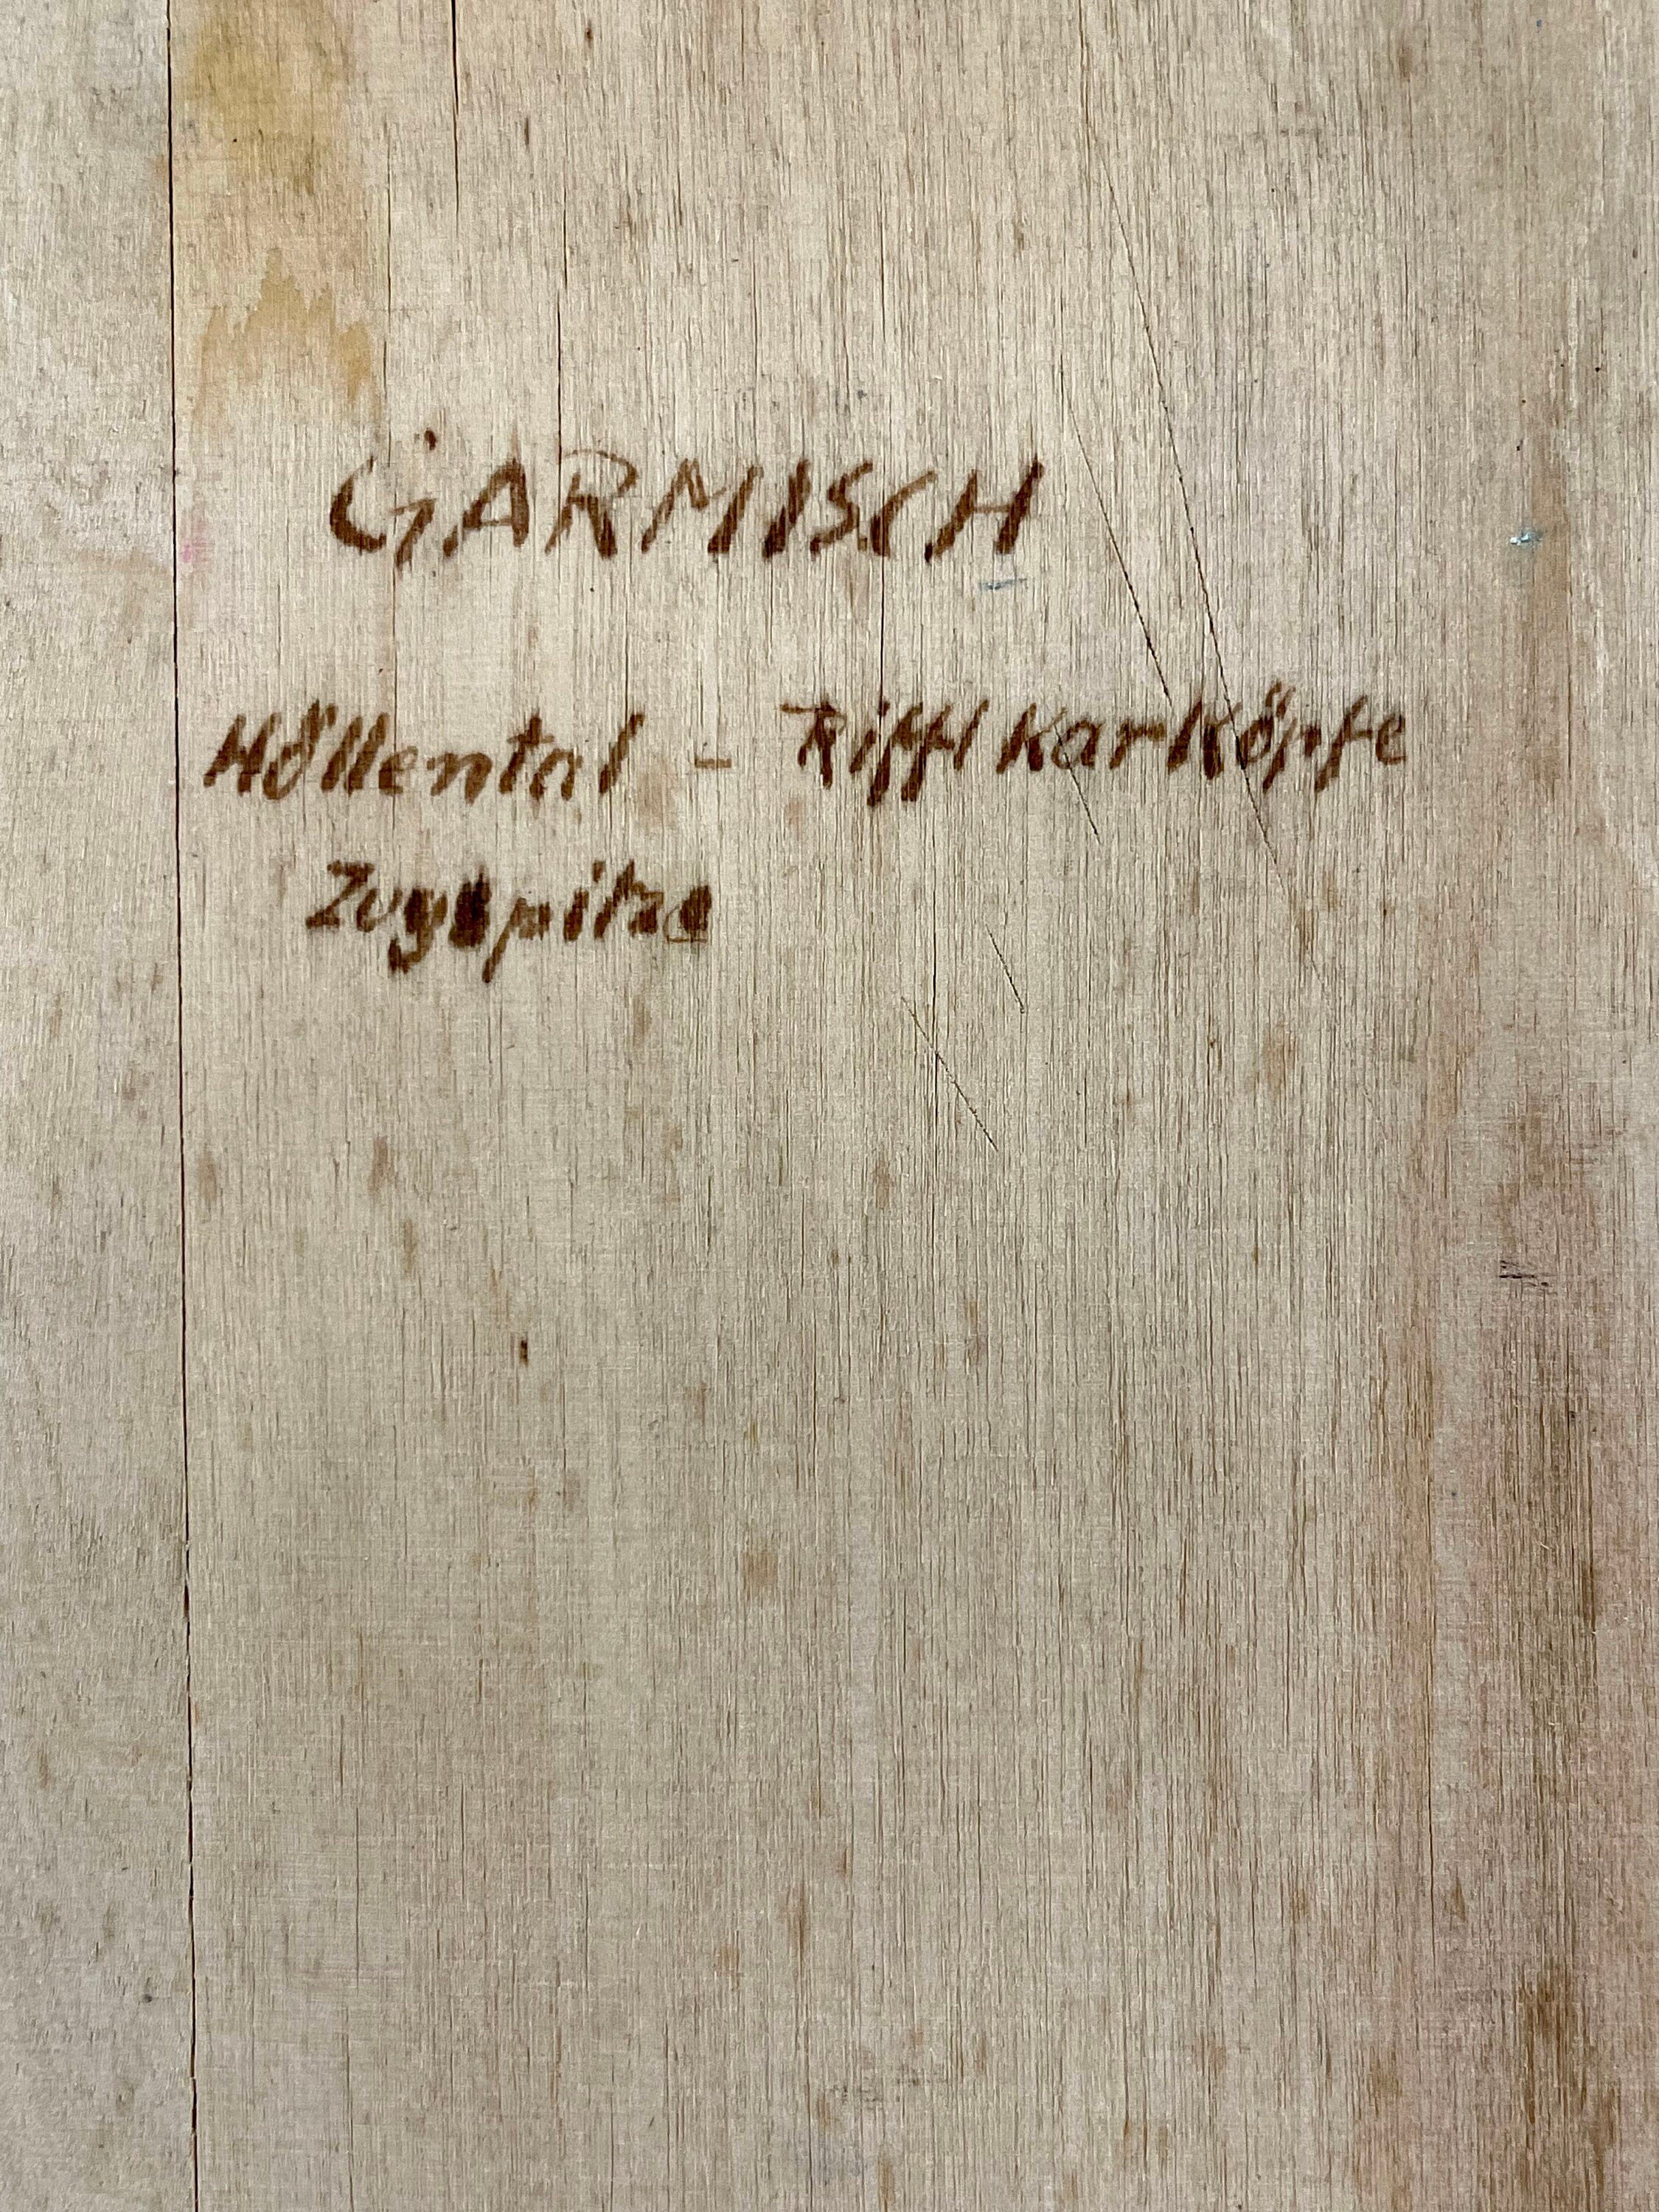 GARMISCH
Höllental - Riffl Karköpfe
Zugspitze